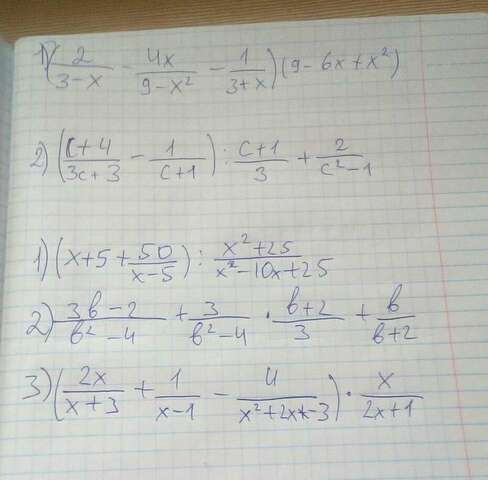 1) (2/(3-x) - 4x/(9-x²) - 1/(3+x)) (9-6x+x²)
2) ((c+4)/(3c+3) - 1/(c+1)) : (c+1)/3 + 2/(c²-1)
1) (x+5+50/(x-5)) : (x²+25)/(x²-10x+25)
2) (3b-2)/(b²-4) + 3/(b²-4) · (b+2)/3 + b/(b+2)
3) (2x/(x+3) + 1/(x-1) - 4/(x²+2x-3)) · x/(2x+1)